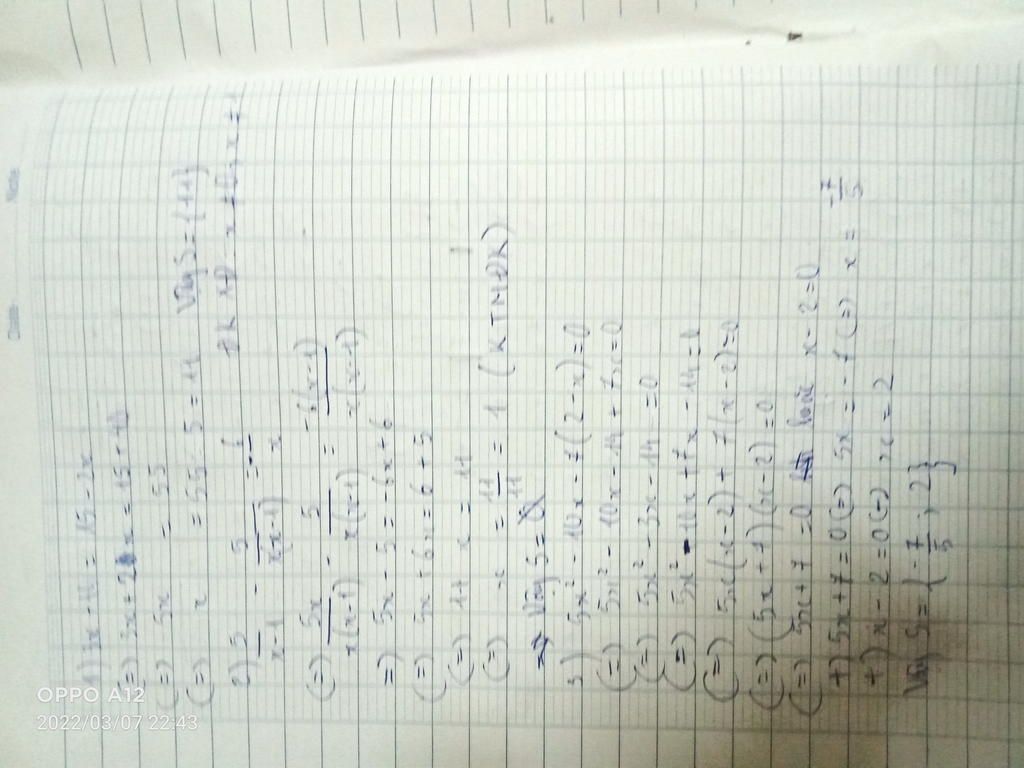 1) 3x - 40 = 15 - 2x
(=) 3x + 2x = 15 + 40
(=) 5x = 55
(=) x = 55 : 5 = 11 Vậy S = {11}
ĐK x ≠ 0, x ≠ 1
2) 5/(x-1) - 5/(x(x-1)) = -6/x
(=) 5x/(x(x-1)) - 5/(x(x-1)) = -6(x-1)/(x(x-1))
=) 5x - 5 = -6x + 6
(=) 5x + 6x = 6 + 5
(=) 11x = 11
(=) x = 11/11 = 1 (KTMĐK)
=> Vậy S = Ø
3) 5x² - 10x - 7(2-x) = 0
(=) 5x² - 10x - 14 + 7x = 0
(=) 5x² - 3x - 14 = 0
(=) 5x² - 10x + 7x - 14 = 0
(=) 5x(x-2) + 7(x-2) = 0
(=) (5x+7)(x-2) = 0
(=) 5x + 7 = 0 hoặc x - 2 = 0
+) 5x + 7 = 0 (=) 5x = -7 (=) x = -7/5
+) x - 2 = 0 (=) x = 2
Vậy S = {-7/5 ; 2}
OPPO A12
2022/03/07 22:43